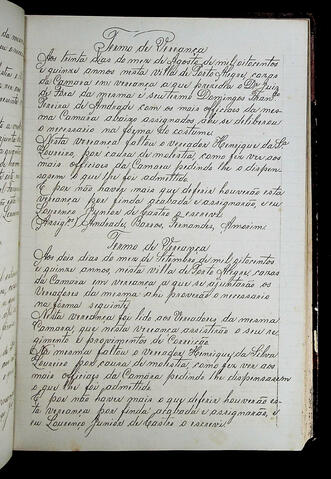 Termo de Veriança
Aos trinta dias do mez de Agosto de mil oitocentos
e quinze annos nesta villa de Porto Alegre, cazas
da Camara em veriança a que prezedio o Dr. Juiz
de Fora da mesma e seu termo Domingos Franco.
Pereira de Andrade com os mais officiaes da mes-
ma Camara abaixo assignados ahi se deliberou
o necessario na forma do costume.
Nesta veriança faltou o vereador Henrique da Sa.
Loureiro por cauza de molestia, como fez ver aos
mais officiaes da Camara pedindo lhe a dispen-
sasem o que lhe foi admitido.
E por não haver mais que deferir houverão esta
veriança por finda acabada e assignarão, e eu
Lourenço Junior de Castro o escrevi.
Assigos. / Andrade, Barros, Fernandes, Amorim.
Termo de Veriança
Aos dois dias do mez de Setembro de mil oitocentos
e quinze annos, nesta villa de Porto Alegre, cazas
da Camara em veriança a que se ajuntarão os
vereadores da mesma ahi proverão o necessario
na forma seguinte.
Nesta veriança foi lido aos vereadores da mesma
Camara, que nesta veriança assistirão o seu re-
gimento e provimentos de Correição.
Na mesma faltou o vereador Henrique da Silva
Loureiro por cauza de molestia, como fez ver aos
mais officiaes da Camara pedindo lhe dispensassem
o que lhe foi admitido.
E por não haver mais o que deferir houverão es-
ta veriança por finda acabada e assignarão, e
eu Lourenço Junior de Castro o escrevi.